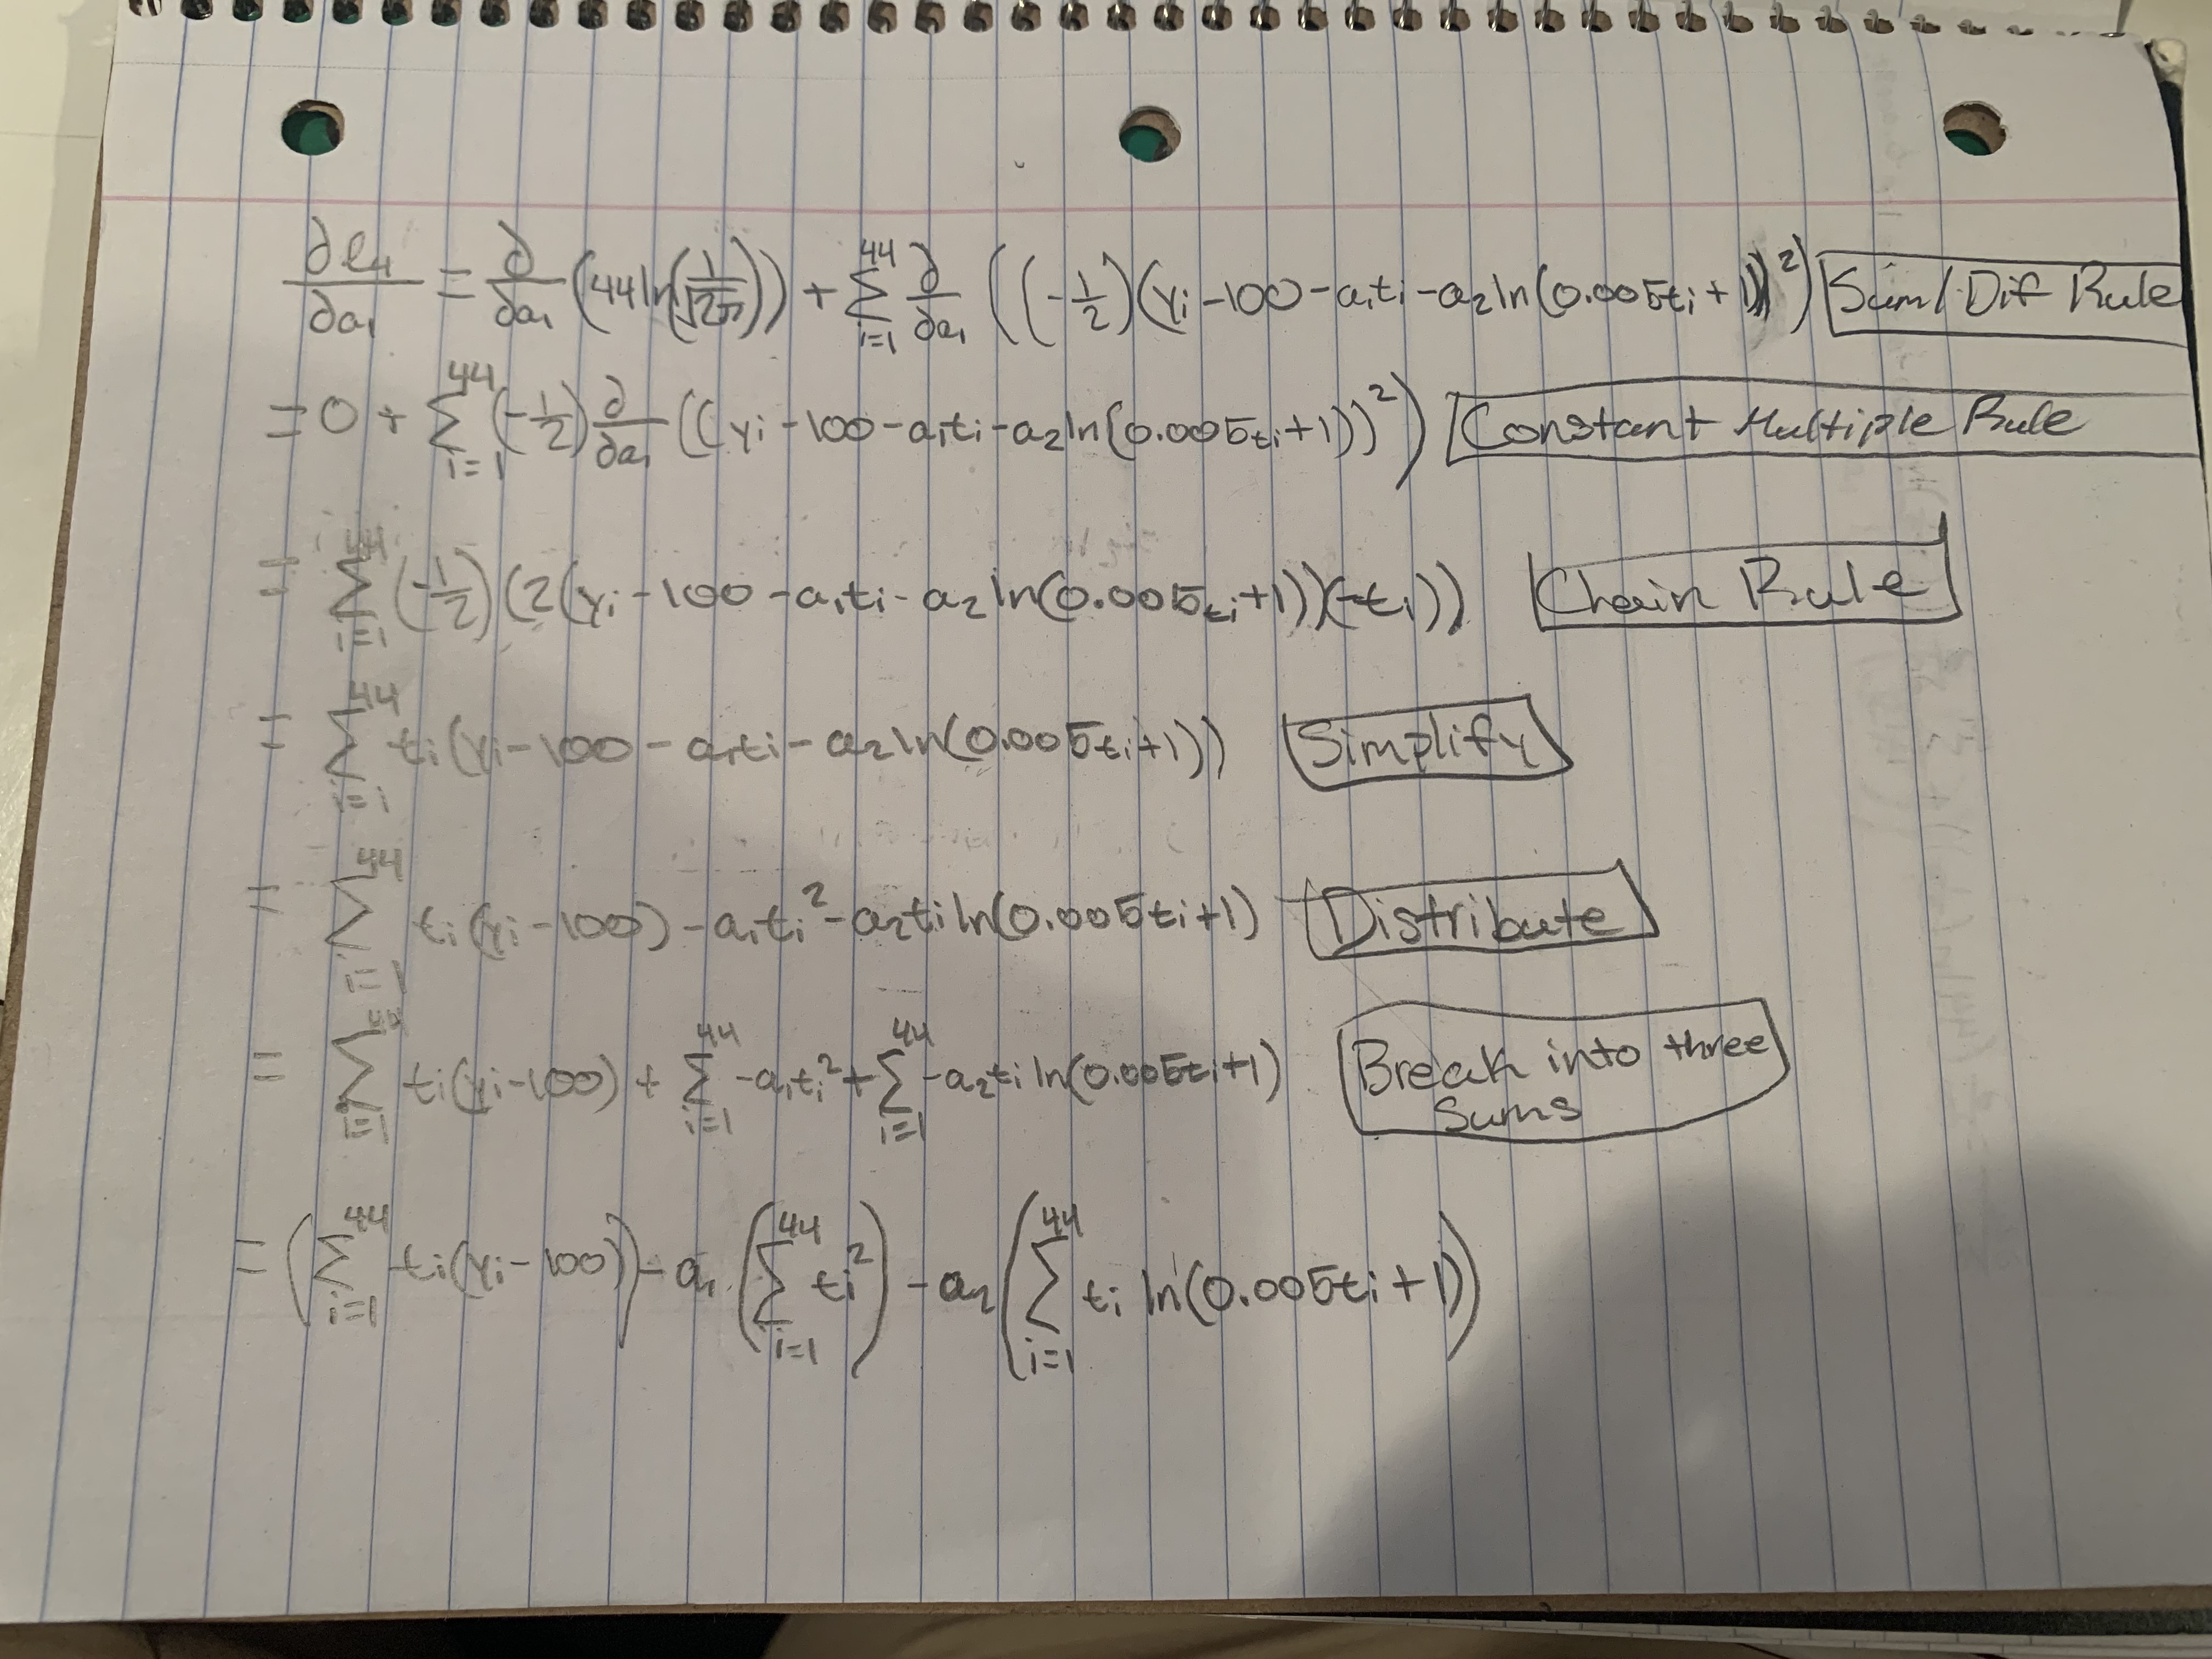 ∂ℓ₄/∂a₁ = ∂/∂a₁ (44 ln(1/√2π)) + ∑_{i=1}^{44} ∂/∂a₁ ((-1/2)(yᵢ - 100 - a₁tᵢ - a₂ln(0.005tᵢ + 1))²) Sum/Dif Rule
= 0 + ∑_{i=1}^{44} (-1/2) ∂/∂a₁ ((yᵢ - 100 - a₁tᵢ - a₂ln(0.005tᵢ + 1))²) Constant Multiple Rule
= ∑_{i=1}^{44} (-1/2)(2(yᵢ - 100 - a₁tᵢ - a₂ ln(0.005tᵢ + 1))(-tᵢ)) Chain Rule
= ∑_{i=i}^{44} tᵢ(yᵢ - 100 - a₁tᵢ - a₂ln(0.005tᵢ + 1)) Simplify
= ∑_{i=1}^{44} tᵢ(yᵢ - 100) - a₁tᵢ² - a₂tᵢ ln(0.005tᵢ + 1) Distribute
= ∑_{i=1}^{44} tᵢ(yᵢ - 100) + ∑_{i=1}^{44} -a₁tᵢ² + ∑_{i=1}^{44} -a₂tᵢ ln(0.005tᵢ + 1) Break into three
Sums
= (∑_{i=1}^{44} tᵢ(yᵢ - 100)) - a₁(∑_{i=1}^{44} tᵢ²) - a₂(∑_{i=1}^{44} tᵢ ln(0.005tᵢ + 1))